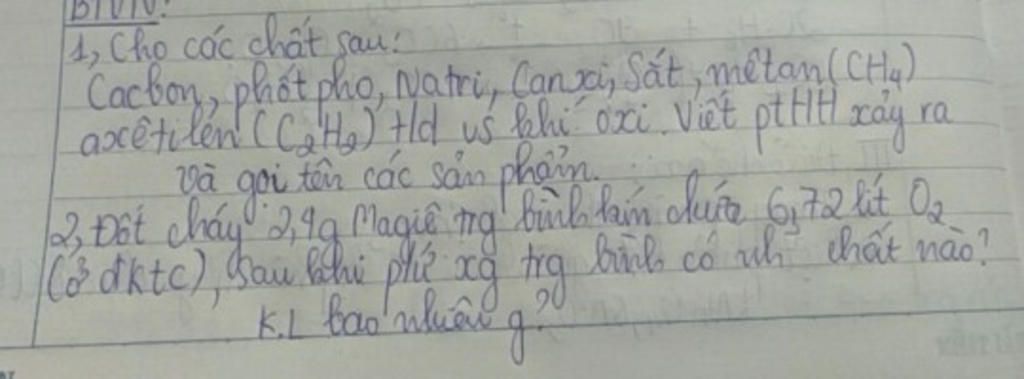 BTVN:
1, Cho các chất sau:
Cacbon, phốt pho, Natri, Canxi, Sắt, mêtan (CH4)
axêtilen (C2H2) t/d vs khí oxi. Viết ptHH xảy ra
và gọi tên các sản phẩm.
2, Đốt cháy 2,4g Magiê trg bình kín chứa 6,72 lít O2
(ở đktc), sau khi pứ xg trg bình có nh chất nào?
K.L bao nhiêu g?